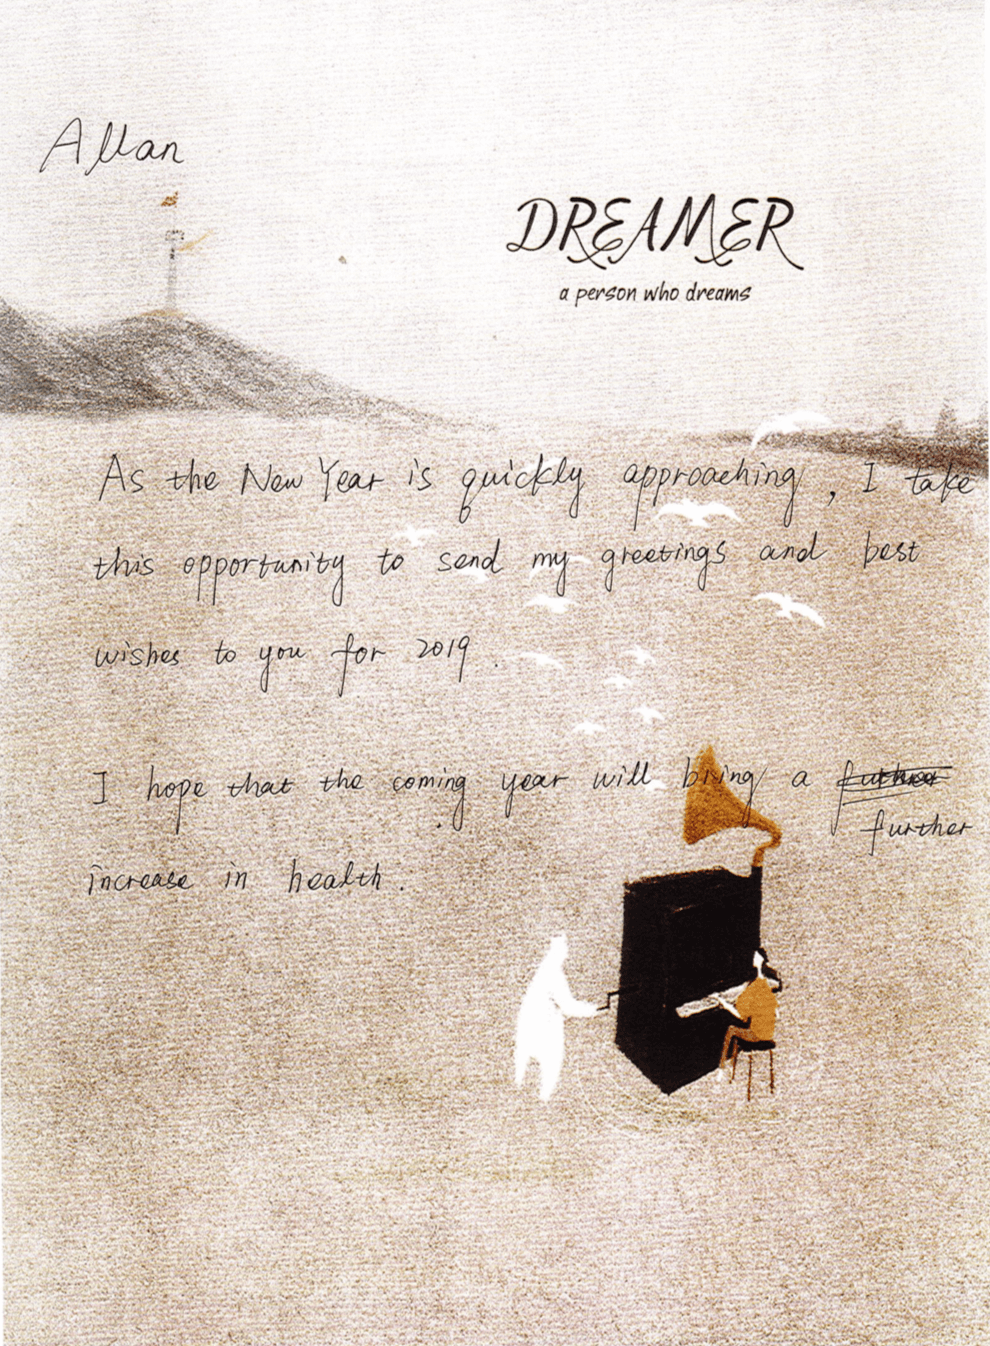 Allan
DREAMER
a person who dreams
As the New Year is quickly approaching, I take
this opportunity to send my greetings and best
wishes to you for 2019.
I hope that the coming year will bring a
further
increase in health.